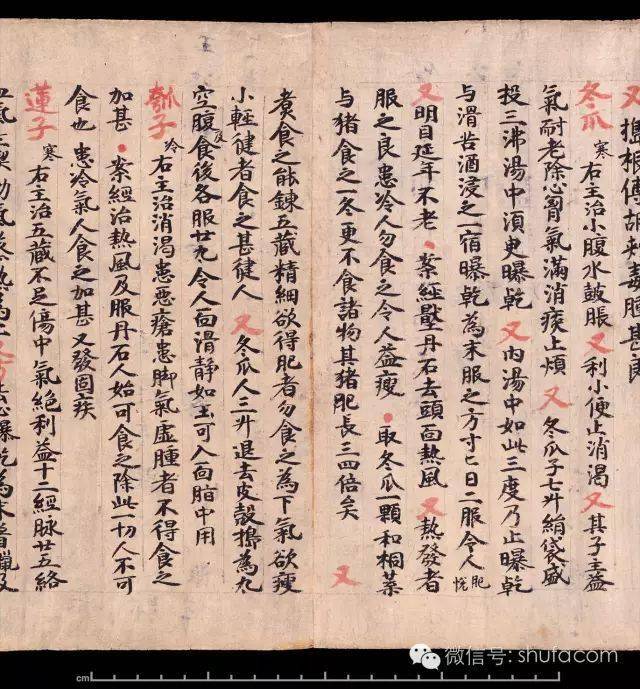 又 擣根傅胡
冬瓜 寒 右主治小腹水鼓脹 又 利小便止消渴 又 其子主益
氣耐老除心胷氣滿消痰止煩 又 冬瓜子七升絹袋盛
投三沸湯中湏臾曝乾 又 內湯中如此三度乃止曝乾
与清苦酒浸之一宿曝乾為末服之方寸匕日二服令人肥悅
又 明目延年不老 案經壓丹石去頭面熱風 又 熱發者
服之良患冷人勿食之令人益瘦 取冬瓜一顆和桐葉
与猪食之一冬更不食諸物其猪肥長三四倍矣 又
煑食之能鍊五藏精細欲得肥者勿食之為下氣欲瘦
小輕健者食之甚健人 又 冬瓜人三升退去皮殼擣為丸
空腹及食後各服廿丸令人面滑静如玉可入面脂中用
瓠子 冷 右主治消渴患惡瘡患脚氣虛腫者不得食之
加甚 案經治熱風及服丹石人始可食之除此一切人不可
食也 患冷氣人食之加甚 又發固疾
蓮子 寒 右主治五藏不足傷中氣絕利益十二經脉廿五絡
微信号: shufacom
cm